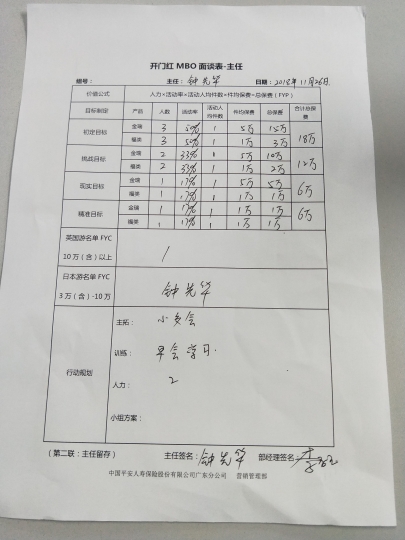 开门红 MBO 面谈表-主任
组号： 主任：钟先华 日期：2018年11月26日
价值公式 人力×活动率×活动人均件数×件均保费=总保费（FYP）
目标制定 产品 人数 活动率 活动人均件数 件均保费 总保费 合计总保费
初定目标 金瑞 3 50% 1 5万 15万 18万
福类 3 50% 1 1万 3万
挑战目标 金瑞 2 33% 1 5万 10万 12万
福类 2 33% 1 1万 2万
现实目标 金瑞 1 17% 1 5万 5万 6万
福类 1 17% 1 1万 1万
精准目标 金瑞 1 17% 1 1万 1万 6万
福类 1 17% 1 1万 1万
英国游名单 FYC
10 万（含）以上 /
日本游名单 FYC
3 万（含）-10 万 钟先华
行动规划
主拓：小多会
训练：早会学习
人力：2
小组方案：
（第二联：主任留存） 主任签名：钟先华 部经理签名：
中国平安人寿保险股份有限公司广东分公司 营销管理部